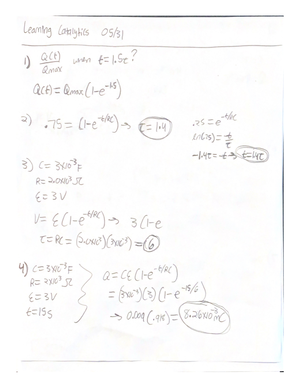 Learning Catalytics 05/31
1) Q(t)/Qmax when t=1.5τ?
Q(t)=Qmax(1-e^-1.5)
2) .75=(1-e^-t/RC) → t=1.4
.25=e^-t/RC
ln(.25)=-t/τ
-1.4τ=-t → t=1.4τ
3) C=3x10^-3 F
R=2.0x10^3 Ω
ε=3V
V=ε(1-e^-t/RC) → 3(1-e
τ=RC=(2.0x10^3)(3x10^-3)=6
4) C=3x10^-3 F
R=2x10^3 Ω
ε=3V
t=15s
Q=Cε(1-e^-t/RC)
=(3x10^-3)(3)(1-e^-15/6)
→ 0.009(.918)=8.26x10^-3